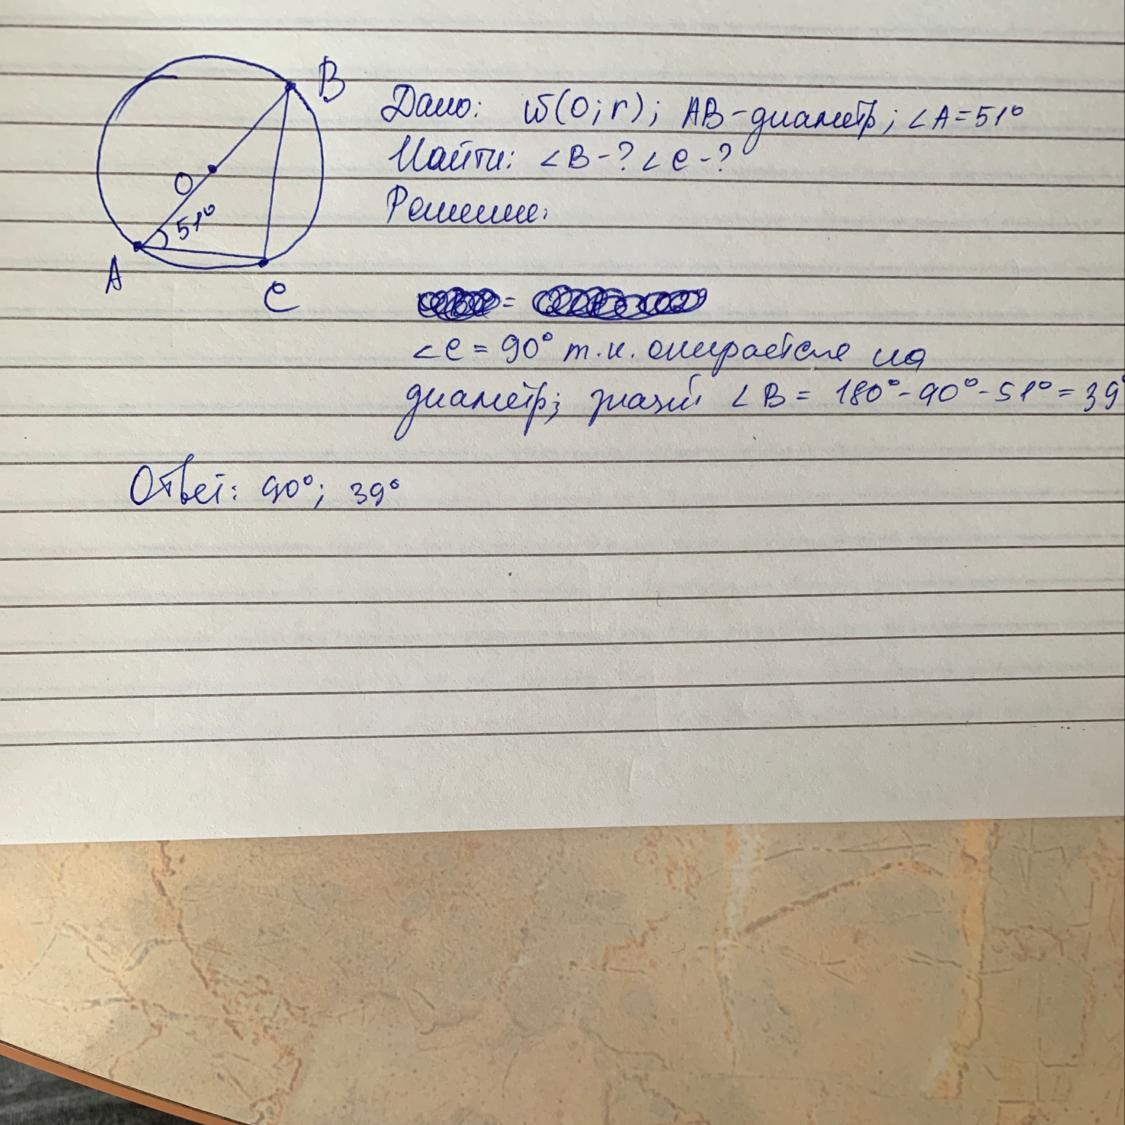 B
Дано: ω(O;r); AB-диаметр; ∠A=51°
Найти: ∠B-? ∠C-?
O
51°
Решение:
A
C
=
∠C = 90° т.к. опирается на
диаметр; значит ∠B = 180°-90°-51°=39°
Ответ: 90°; 39°